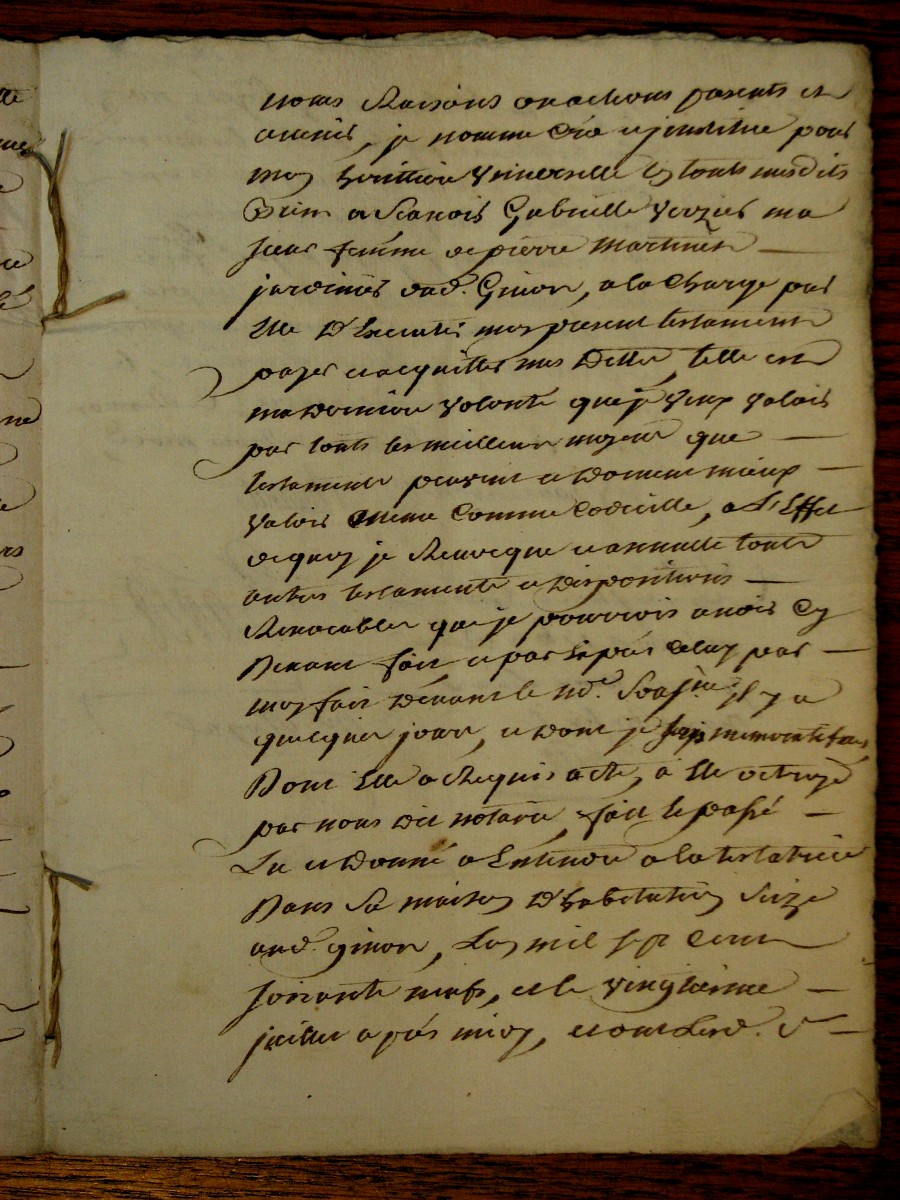 noms Raisons ou actions presents et
avenir, je nomme Crée et jnstitue pour
mon heritiere Universelle En touts mesdits
Biens a Scavoir Gabrielle Verzier ma
soeur femme de pierre Martinet
jardinier aud. Givors, a la Charge par
Elle D'Executer mon present testament
payer et acquitter mes Dettes, telle est
ma Derniere Volonté que je Veux Valoir
par touts les meilleurs moyens que
testaments peuvent et Doivent mieux
Valoir meme Comme Codicille, a L'Effet
de quoy je Revoque et annulle touts
autres testaments et Dispositions
Revocables que je pourrois avoir Cy
Devant fait et par Exprés Celuy par
moy fait Devant le Me. jl y a
quelques jours, et Dont je
Dont Elle a Requis acte, a Elle octroyé
par nous Dit notaire, fait le passé
Lu et Donné a Entendre a la testatrice
Dans Sa maison D'habitation Size
aud. givors, L'an mil sept Cent
soixante neuf, et le Vingtieme
juillet aprés midy, et ont Lesd.